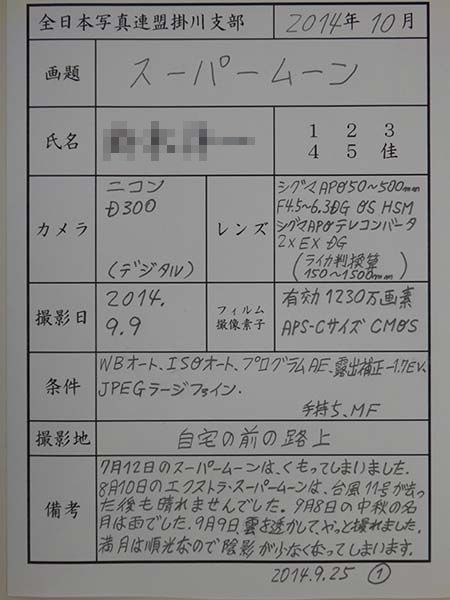 全日本写真連盟掛川支部 2014年10月
画題 スーパームーン
氏名 1 2 3
4 5 佳
カメラ ニコン
D300
(デジタル)
レンズ シグマAPO50~500mm
F4.5~6.3DG OS HSM
シグマAPOテレコンバータ
2X EX DG
(ライカ判換算
150~1500mm)
撮影日 2014.
9.9
フィルム
撮像素子 有効1230万画素
APS-Cサイズ CMOS
条件 WBオート、ISOオート、プログラムAE、露出補正-1.7EV、
JPEGラージファイン、
手持ち、MF
撮影地 自宅の前の路上
備考 7月12日のスーパームーンは、くもってしまいました.
8月10日のエクストラ・スーパームーンは、台風11号が去っ
た後も晴れませんでした。9月8日の中秋の名
月は雨でした。9月9日雲を透かして、やっと撮れました.
満月は順光なので陰影が少なくなってしまいます.
2014.9.25 ①